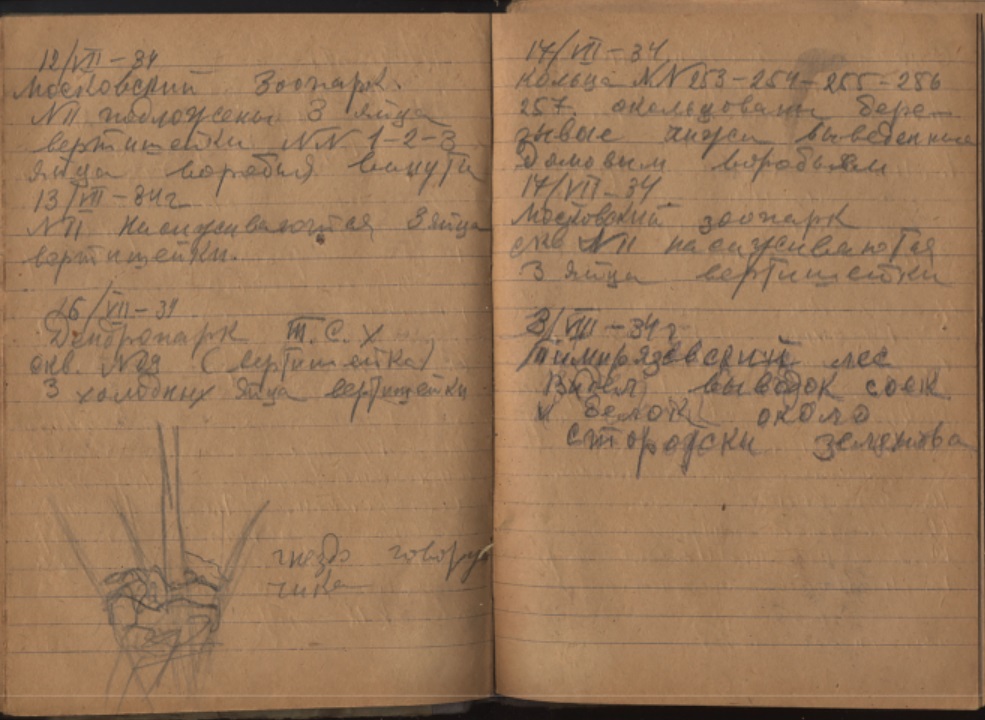 12/VII-34
Московский Зоопарк.
N11 подложены 3 яйца
вертишейки NN 1-2-3
яйца воробья вынуты
13/VII-34г
N11 насиживаются 3 яйца
вертишейки.
26/VII-34
Дендропарк Т.С.Х
скв. (вертишейка)
3 холодных яйца вертишейки
гнездо говорун
чика
17/VII-34
Кольца NN 253-254-255-256
257. окольцованы бере-
зывые чижи выведенные
домовым воробьем
17/VII-34
Московский зоопарк
скв N11 насиживаются
3 яйца вертишейки
3/VIII-34г
Тимирязевский лес
Видел выводок соек
и белок около
сторожки